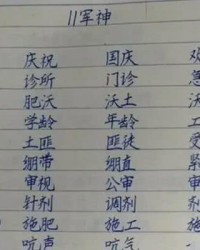 11军神
庆祝 国庆 欢
诊所 门诊 急
肥沃 沃土
学龄 年龄 工
土匪 匪徒 受
绷带 绷直 紧
审视 公审 审
针剂 调剂 剂
施肥 施工
吭声 吭气